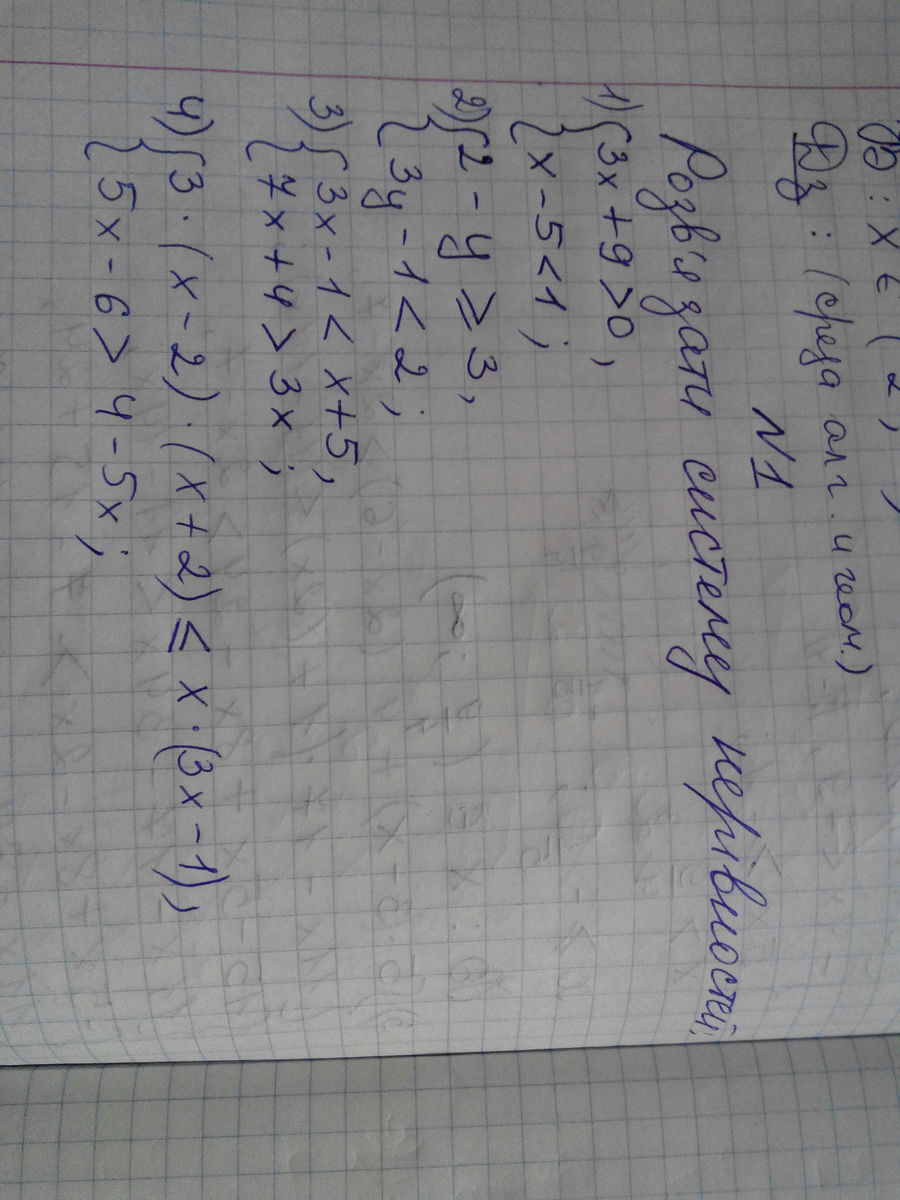 В: x ∈ (2;
Дз: (среда алг. и геом.)
N1
Розв'язати систему нерівностей:
1) { 3x + 9 > 0,
x - 5 < 1;
2) { 2 - y ≥ 3,
3y - 1 < 2;
3) { 3x - 1 < x + 5,
7x + 4 > 3x;
4) { 3 · (x - 2) · (x + 2) ≤ x · (3x - 1),
5x - 6 > 4 - 5x;